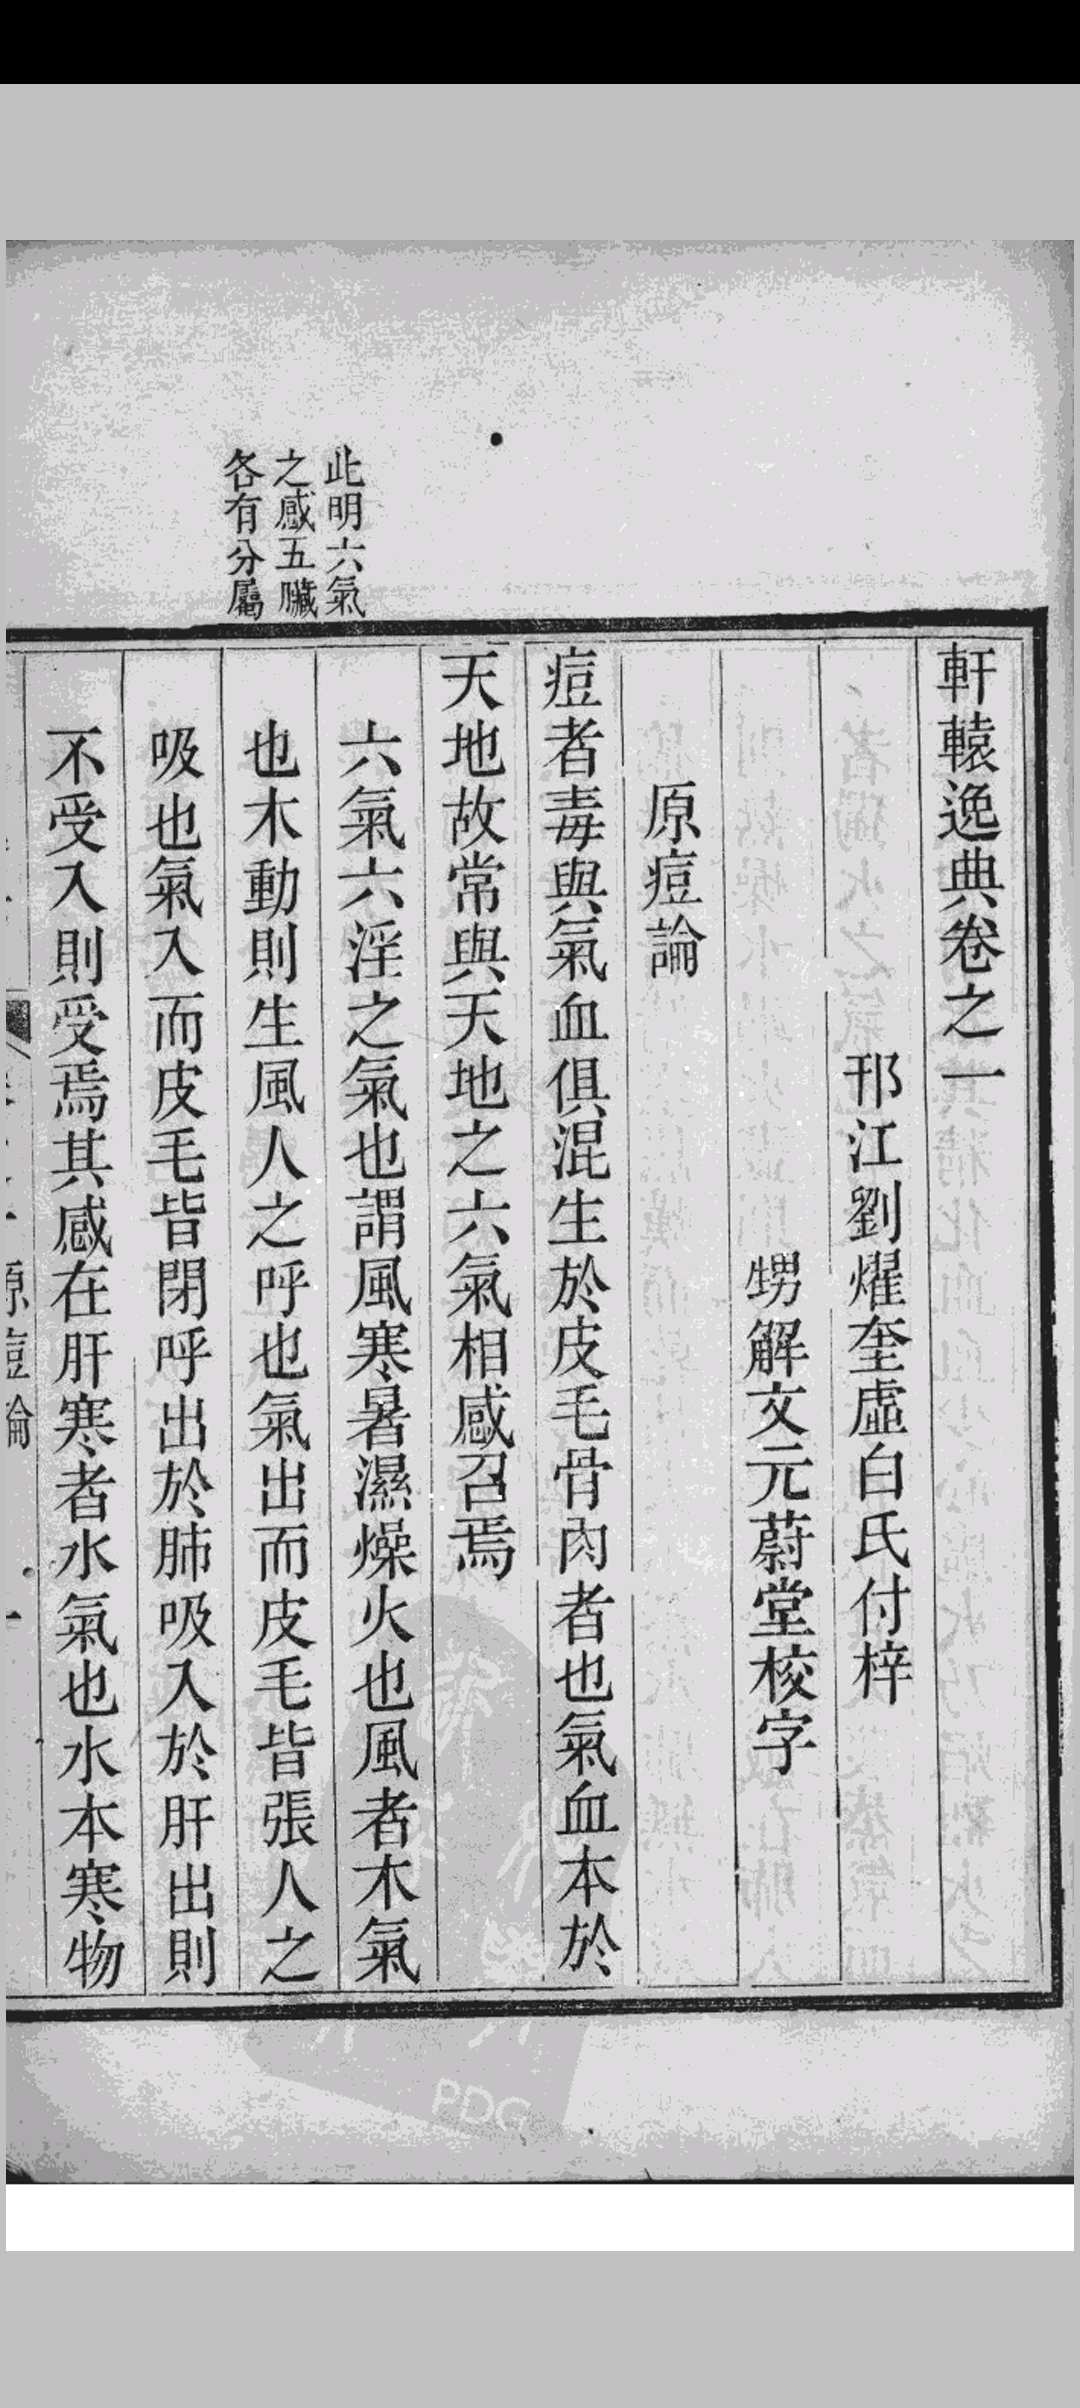 軒轅逸典卷之一
邗江劉燿奎虛白氏付梓
甥解文元蔚堂校字
原痘論
痘者毒與氣血俱混生於皮毛骨肉者也氣血本於
天地故常與天地之六氣相感召焉
此明六氣
之感五臟
各有分屬
六氣六淫之氣也謂風寒暑濕燥火也風者木氣
也木動則生風人之呼也氣出而皮毛皆張人之
吸也氣入而皮毛皆閉呼出於肺吸入於肝出則
不受入則受焉其感在肝寒者水氣也水本寒物
原痘論
PDG